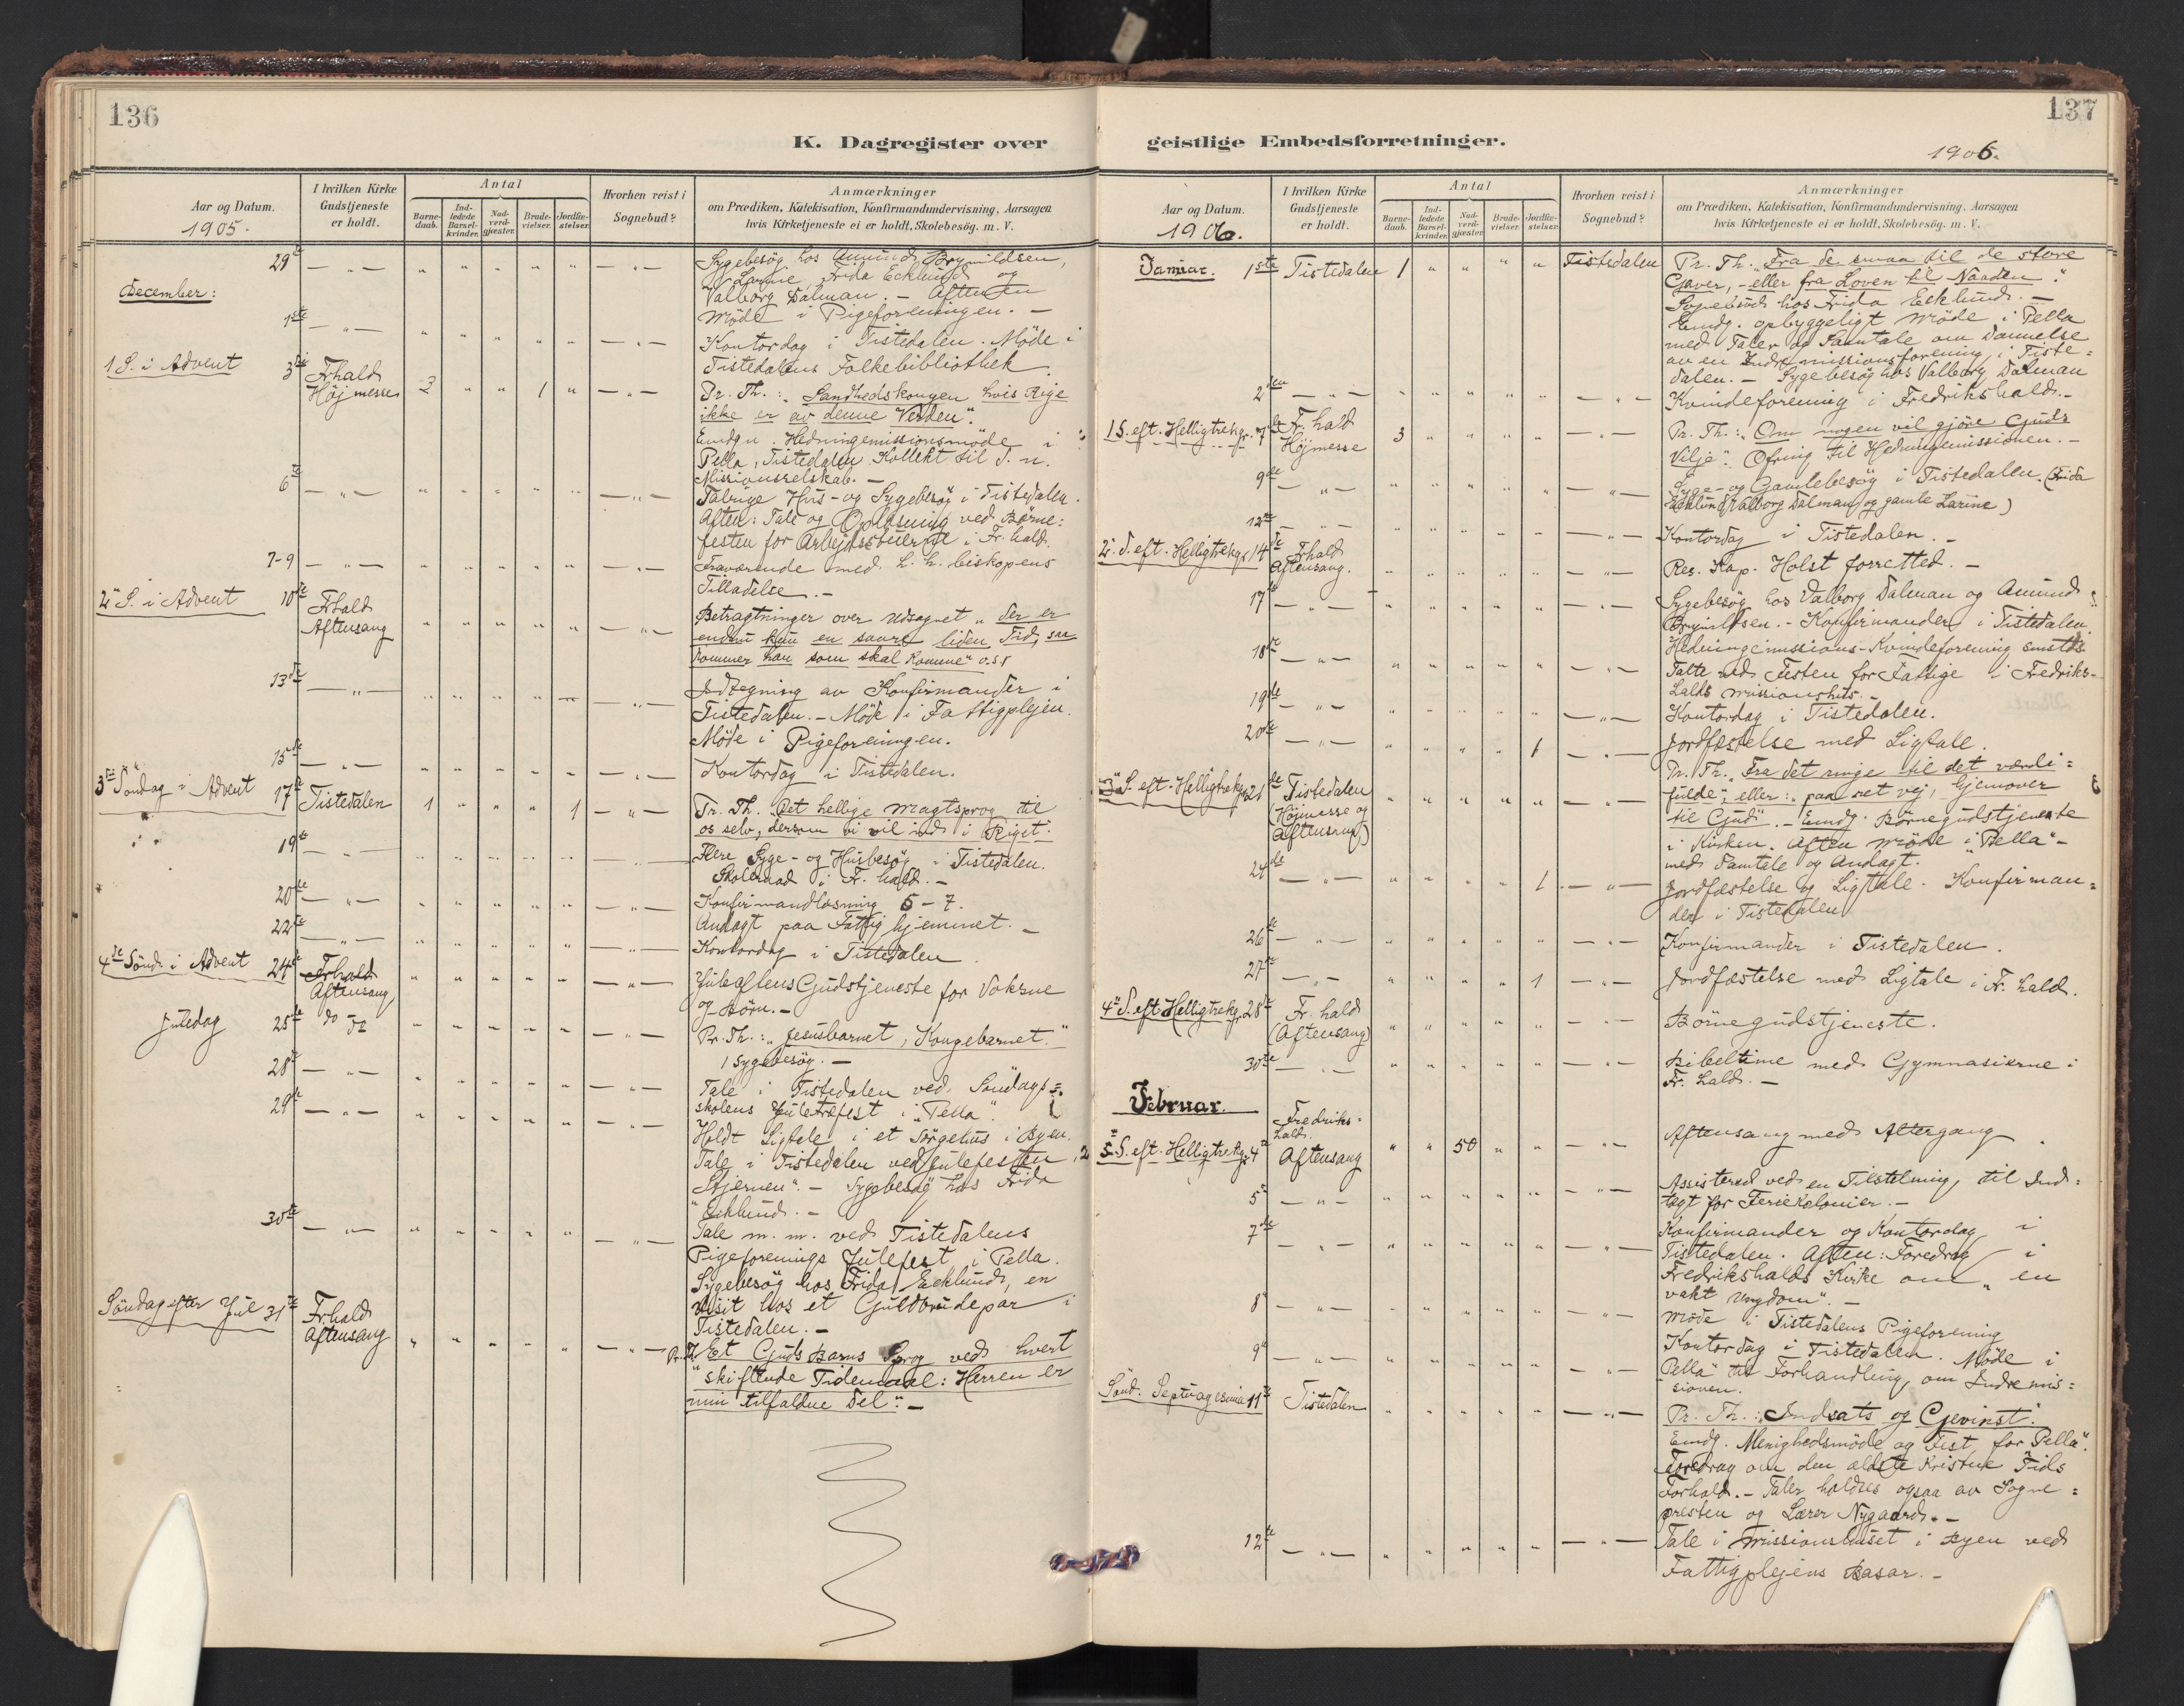 136
K. Dagregister over
Aar og Datum.
1905.
I hvilken Kirke
Gudstjeneste
er holdt.
Antal
Barne-
daab.
Ind-
ledede
Barsel-
kvinder.
Nad-
verd-
gjæster.
Brude-
vielser.
Jordfæ-
stelser.
Hvorhen reist i
Sognebud?
Anmærkninger
om Prædiken, Katekisation, Konfirmandundervisning, Aarsagen
hvis Kirketjeneste ei er holdt, Skolebesøg. m. V.
29de Sygebesøg hos Amund Brynildsen,
Larine, Frida Ecklund og
December: Valborg Dalman. - Aftenen
Møde i Pigeforeningen. -
1ste Kontordag i Tistedalen. Møde i
Tistedalens Folkebibliothek.
1 S. i Advent 3die Fr.hald
Højmesse 3 " " 1 " Pr. Th.: "Sandhedskongen hvis Rige
ikke er av denne Verden".
Emdgn. Hedningemissionsmøde i
Pella, Tistedalen. Kollekt til d. n.
Missionsselskab. -
6te Talrige Hus- og Sygebesøg i Tistedalen.
Aften: Tale og Oplæsning ved Børne-
festen for Arbejdsstuerne i Fr.hald.
7-9 Fraværende med h. h. biskopens
Tilladelse. -
2 S. i Advent 10de Fr.hald
Aftensang
Betragtninger over Udsagnet "der er
endnu kun en saare liden Tid, saa
kommer han som skal komme" o.s.v.
13de Indtegning av Konfirmander i
Tistedalen. - Møde i Fattigplejen.
Møde i Pigeforeningen.
15de Kontordag i Tistedalen.
3die Søndag i Advent 17de Tistedalen 1 " " " 1 Pr. Th. "Det hellige Magtsprog til
os selv, dersom vi vil ind i Riget".
19de Flere Syge- og Husbesøg i Tistedalen.
Skoleraad i Fr.hald. -
20de Konfirmandlæsning 5-7.
Andagt paa Fattighjemmet. -
22de Kontordag i Tistedalen.
4de Sønd. i Advent 24de Fr.hald
Aftensang
JuleaftensGudstjeneste for Voksne
og Børn. -
Juledag 25de do do Pr. Th.: "Jesusbarnet, Kongebarnet".
1 Sygebesøg. -
28de Tale i Tistedalen ved Søndags-
skolens Juletræfest i "Pella".
29de Holdt Ligtale i et Sørgehus i Byen.
Tale i Tistedalen ved Julefesten i
"Stjernen". - Sygebesøg hos Frida
Ecklund. -
30te Tale m. m. ved Tistedalens
Pigeforenings Julefest i Pella.
Sygebesøg hos Frida Ecklund, en
Visit hos et Guldbrudepar i
Tistedalen. -
Søndag efter Jul 31te Fr.hald
Aftensang
Pr. Th. "Et Guds Barns Sprog ved hvert
skiftende Tidemaal: Herren er
min tilfaldne Del". -
137
geistlige Embedsforretninger.
1906.
Aar og Datum.
1906.
I hvilken Kirke
Gudstjeneste
er holdt.
Antal
Barne-
daab.
Ind-
ledede
Barsel-
kvinder.
Nad-
verd-
gjæster.
Brude-
vielser.
Jordfæ-
stelser.
Hvorhen reist i
Sognebud?
Anmærkninger
om Prædiken, Katekisation, Konfirmandundervisning, Aarsagen
hvis Kirketjeneste ei er holdt, Skolebesøg. m. V.
Januar. 1ste Tistedalen 1 " " " " Tistedalen Pr. Th. "Fra de smaa til de store
Gaver, - eller fra Loven til Naaden".
Sognebud hos Frida Ecklund. -
Emdg. opbyggeligt Møde i Pella
med Taler og Samtale om Dannelse
av en Indremissionsforening i Tiste-
dalen. - Sygebesøg hos Valborg Dalman
2den Kvindeforening i Fredrikshald. -
1 S. eft. Helligtrekgr. 7de Fr.hald
Højmesse 3 Pr. Th.: "Om nogen vil gjøre Guds
Vilje". Ofring til Hedningemissionen. -
9de Syge- og Gamlebesøg i Tistedalen. (Frida
Ecklund, Valborg Dalman og gamle Larine)
12te Kontordag i Tistedalen. -
2. S. eft. Helligtrekgr. 14de Fr.hald
Aftensang. Res. Kap. Holst forretted. -
17de Sygebesøg hos Valborg Dalman og Amund
Brynildsen. - Konfirmander i Tistedalen.
Hedningemissions-Kvindeforening smstds.
18de Talte ved Festen for Fattige i Fredriks-
halds Missionshus. -
19de Kontordag i Tistedalen.
20de 1 Jordfæstelse med Ligtale.
3 S. eft. Helligtrekgr. 21de Tistedalen
(Højmesse og
Aftensang)
Pr. Th. "Fra det ringe til det værdi-
fulde", eller: "paa ret vej, hjemover
til Gud". - Emdg. Børnegudstjeneste
i Kirken. Aften Møde i "Pella" -
med Samtale og Andagt.
24de 1 Jordfæstelse og Ligtale. Konfirman-
der i Tistedalen
26de Konfirmander i Tistedalen.
27de 1 Jordfæstelse med Ligtale i Fr.hald.
4 S. eft. Helligtrekgr. 28de Fr.hald
(Aftensang) Børnegudstjeneste.
30te Bibeltime med Gymnasierne i
Fr.hald. -
Februar.
5 S. eft. Helligtrekgr. 4de Fredriks-
hald.
Aftensang " " 50 " " Aftensang med Altergang.
5te Assistered ved en Tilstelning til Ind-
tægt for Feriekolonier. -
7de Konfirmander og Kontordag i
Tistedalen. Aften: Foredrag i
Fredrikshalds Kirke om "en
vakt Ungdom". -
8de Møde i Tistedalens Pigeforening
9de Kontordag i Tistedalen. Møde i
"Pella" til Forhandling om Indremis-
sionen.
Sønd. Septuagesima 11te Tistedalen Pr. Th.: "Indsats og Gevinst".
Emdg. Menighedsmøde og Fest for "Pella".
Foredrag om den ældste kristne Tids
Forhold. - Taler holdtes ogsaa av Sogne-
presten og Lærer Nygaard. -
12te Tale i Missionshuset i Byen ved
Fattigplejens Basar. -